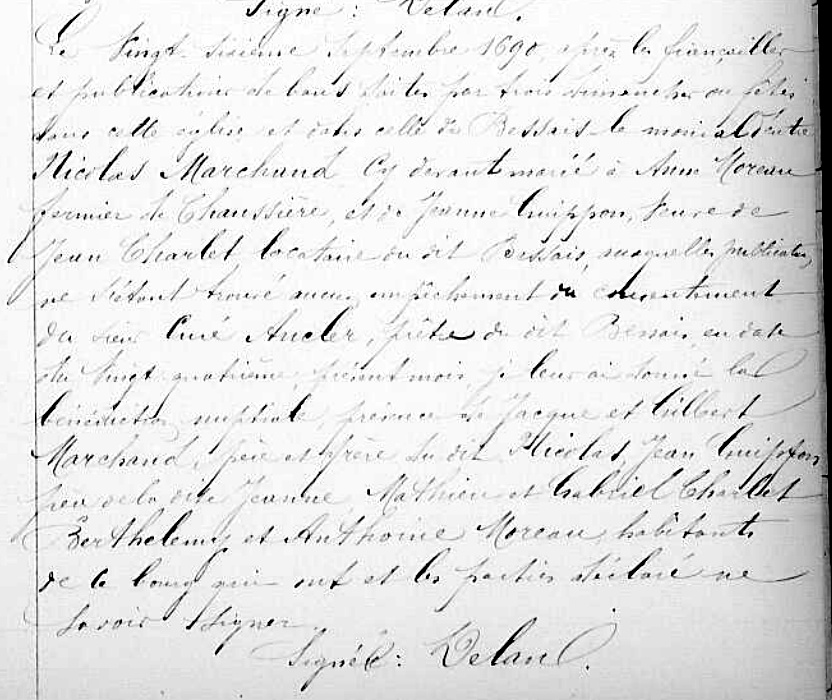 Signé : Delaud.
Le Vingt-sixieme Septembre 1690, après les fiançailles
et publications de bans faites par trois dimanches ou fêtes
dans cette église et dans celle de Bessais le monial d'entre
Nicolas Marchand Cy devant marié à Anne Moreau
fermier de Chaussière, et de Jeanne Guippon, Veuve de
Jean Charlet locataire du dit Bessais, auxquelles publicatns
ne s'étant trouvé aucun empêchement du consentiment
du sieur Curé Ancler, prêtre du dit Bessais, en date
du Vingt quatrième, présent mois, je leur ai donné la
bénédiction nuptiale, présence de Jacque et Gilbert
Marchand, père et frère du dit Nicolas, Jean Guippon,
père de la dite Jeanne, Mathieu et Gabriel Charlet
Berthelemy et Anthoine Moreau, habitants
de ce bourg qui ont et les parties déclaré ne
savoir signer.
Signé : Delaud.